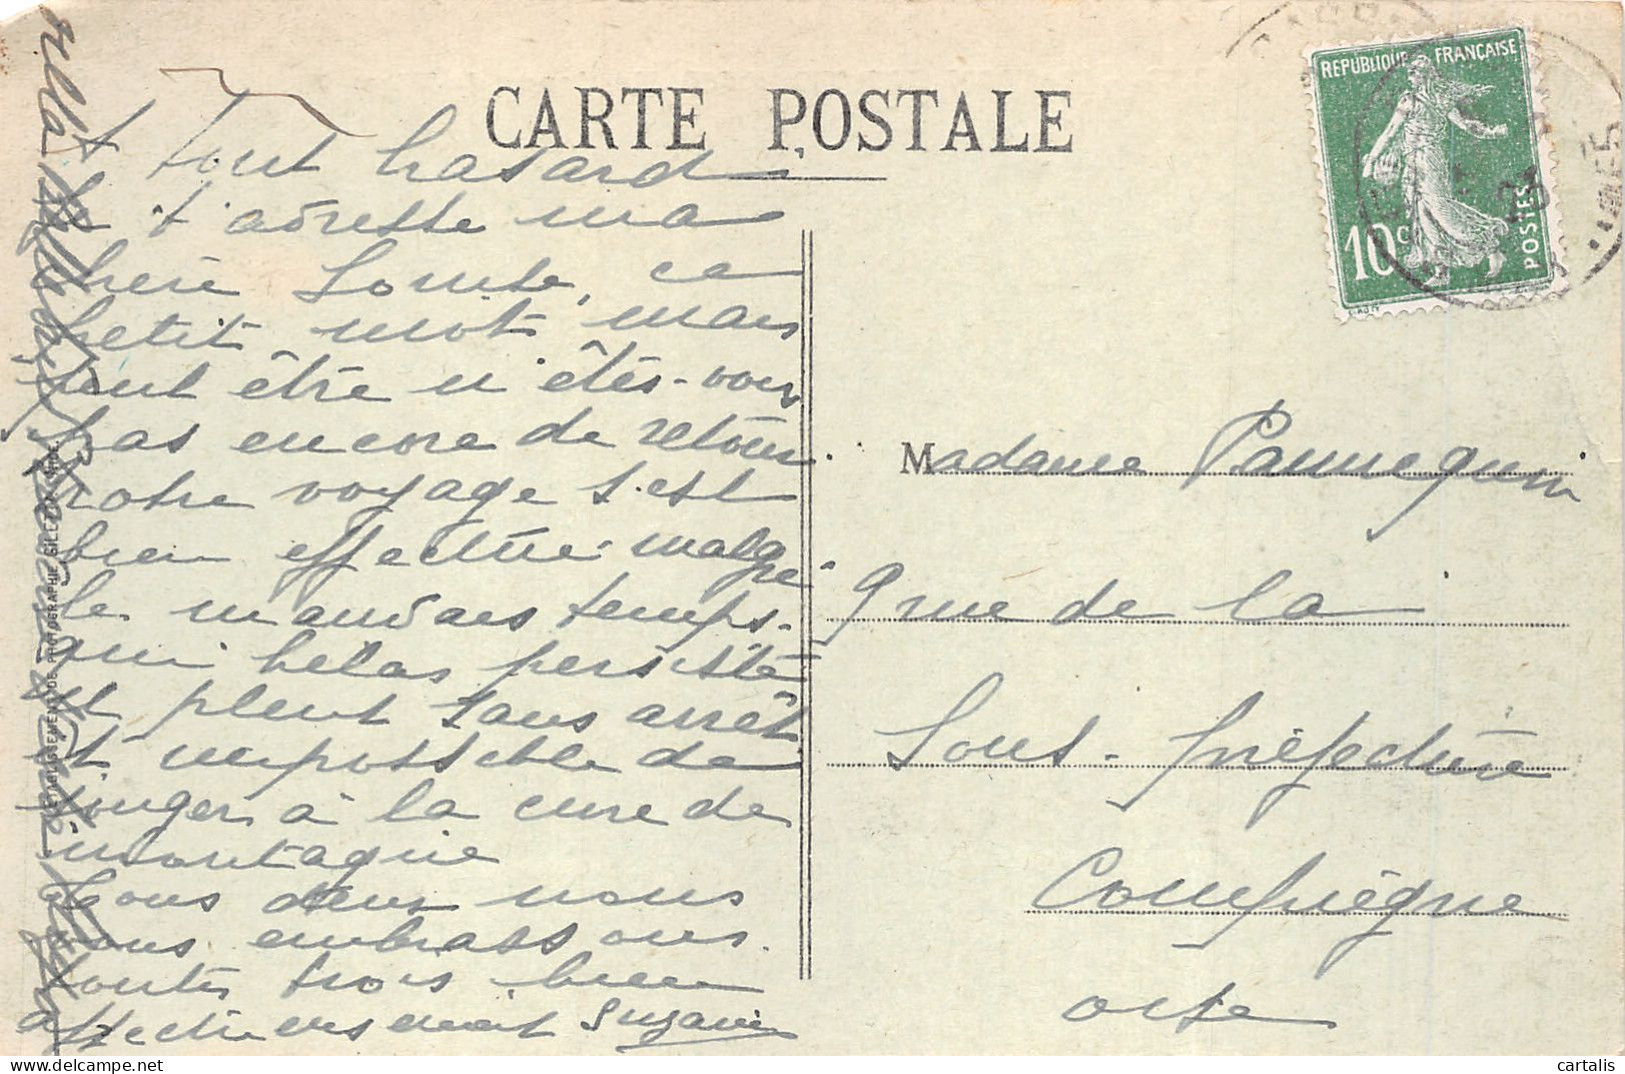 CARTE POSTALE
RÉPUBLIQUE FRANÇAISE
10c POSTES
A tout hasard
t'adresse ma
chère Louise, ce
petit mot, mais
peut être n'êtes-vous
pas encore de retour.
Notre voyage s'est
bien effectué malgré
le mauvais temps.
qui helas persiste
pleut sans arrêt,
impossible de
songer à la cure de
montagne
Tous deux nous
vous embrassons
toutes trois bien
affectueusement Suzanne
Villa
Madame Pannequin
9 rue de la
Sous-préfecture
Compiègne
Oise
cartalis